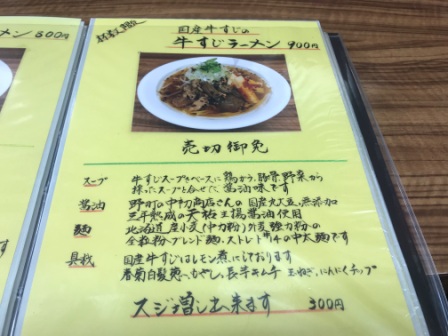 ラーメン 800円
国産牛すじの
牛すじラーメン 900円
売切御免
スープ 牛すじスープをベースに鶏がら、豚骨、野菜から
採ったスープと合せた 醤油味です
醤油 野町の中初商店さんの国産丸大豆、無添加
三年熟成の天格上揚醤油使用
麺 北海道産小麦(中力粉)外麦強力粉の
全粒粉ブレンド麺、ストレート#14の中太麺です
具哉 国産牛すじはレモン煮にしております
春菊白髪葱、もやし、長芋キムチ 玉ねぎ、にんにくチップ
スジ増し出来ます 300円